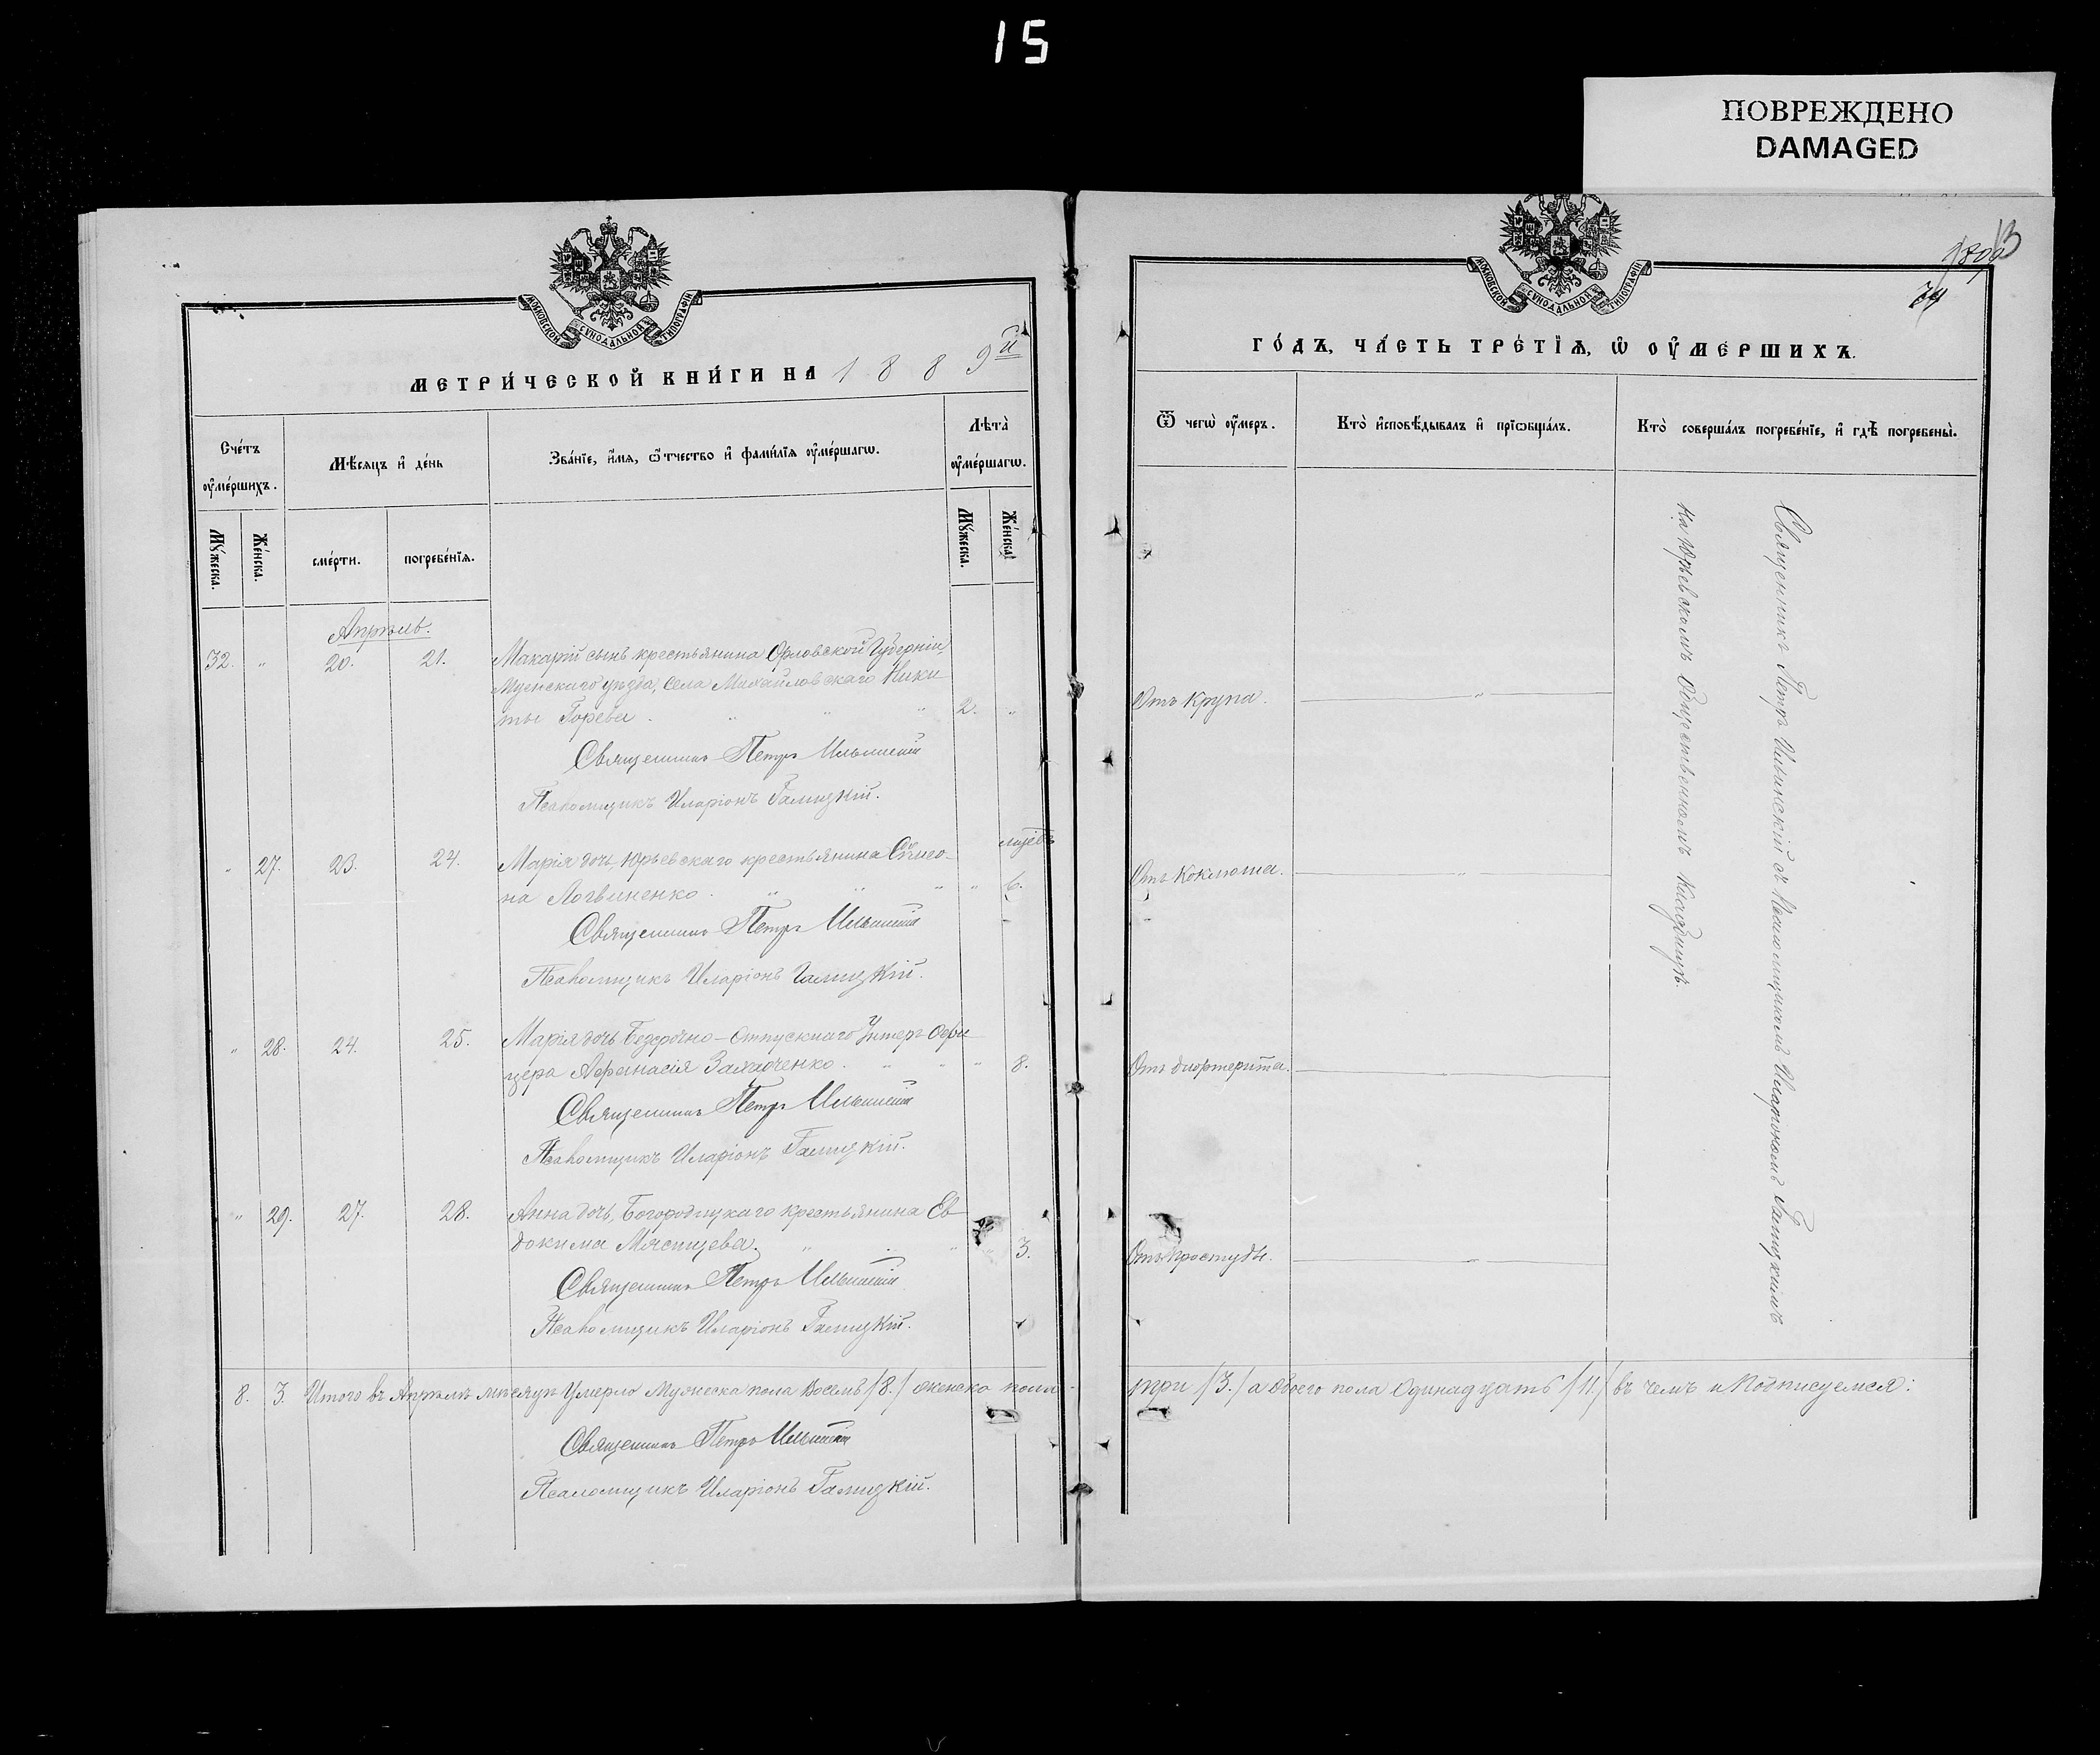 15
ПОВРЕЖДЕНО
DAMAGED
МОСКОВСКОЙ СУНОДАЛЬНОЙ ТИПОГРАФІИ
МЕТРИ́ЧЕСКОЙ КНИ́ГИ НА 1889й
Сче́тъ ᲂу҆ме́ршихъ.
Мѣ́сяцъ и҆ де́нь
Зва́нїе, и҆́мѧ, ѻ҆́тчество и҆ фами́лїѧ ᲂу҆ме́ршагѡ.
Лѣта̀ ᲂу҆ме́ршагѡ.
Мꙋ́жеска.
Же́нска.
сме́рти.
погребе́нїѧ.
Мꙋ́жеска.
Же́нска.
Апрѣль.
32. " 20. 21. Макарій сынъ крестьянина Орловской Губерніи
Мценскаго уѣзда, села Михайловскаго Ники-
ты Горева. " " " 2. "
Священникъ Петръ Ильинскій
Псаломщикъ Иларіонъ Галицкій.
" 27. 23. 24. Марія дочь, Юрьевскаго крестьянина
на Логвиненко. " " " " 6.
Священникъ Петръ Ильинскій
Псаломщикъ Иларіонъ Галицкій.
" 28. 24. 25. Марія дочь Безсрочно-Отпускнаго Унтеръ-Офи-
цера Афанасія " " " 8.
Священникъ Петръ Ильинскій
Псаломщикъ Иларіонъ Галицкій.
" 29. 27. 28. Анна дочь, Богородицкаго крестьянина Ев-
докима Мясищева. " " 3.
Священникъ Петръ Ильинскій
Псаломщикъ Иларіонъ Галицкій.
8. 3. Итого въ Апрѣлѣ мѣсяцѣ Умерло Мужеска пола Восемь /8./ женска пола
Священникъ Петръ Ильинскій
Псаломщикъ Иларіонъ Галицкій.
МОСКОВСКОЙ СУНОДАЛЬНОЙ ТИПОГРАФІИ
13
ГО́ДЪ, ЧА́СТЬ ТРЕ́ТЇѦ, Ѡ҆ ОУ҆МЕ́РШИХЪ.
Ѿ чегѡ̀ ᲂу҆́меръ.
Кто̀ и҆сповѣ́дывалъ и҆ прїѻбща́лъ.
Кто̀ соверша́лъ погребе́нїе, и҆ гдѣ̀ погребены̀.
Отъ Крупа. "
Отъ Коклюша. "
Отъ дифтерита.
Отъ Простуды.
Священникъ Петръ Ильинскій съ Псаломщикомъ Иларіономъ Галицкимъ
На Юрьевскомъ Общественномъ Кладбищѣ.
три /3./ а обоего пола Одинадцать /11./ въ чемъ и Подписуемся: